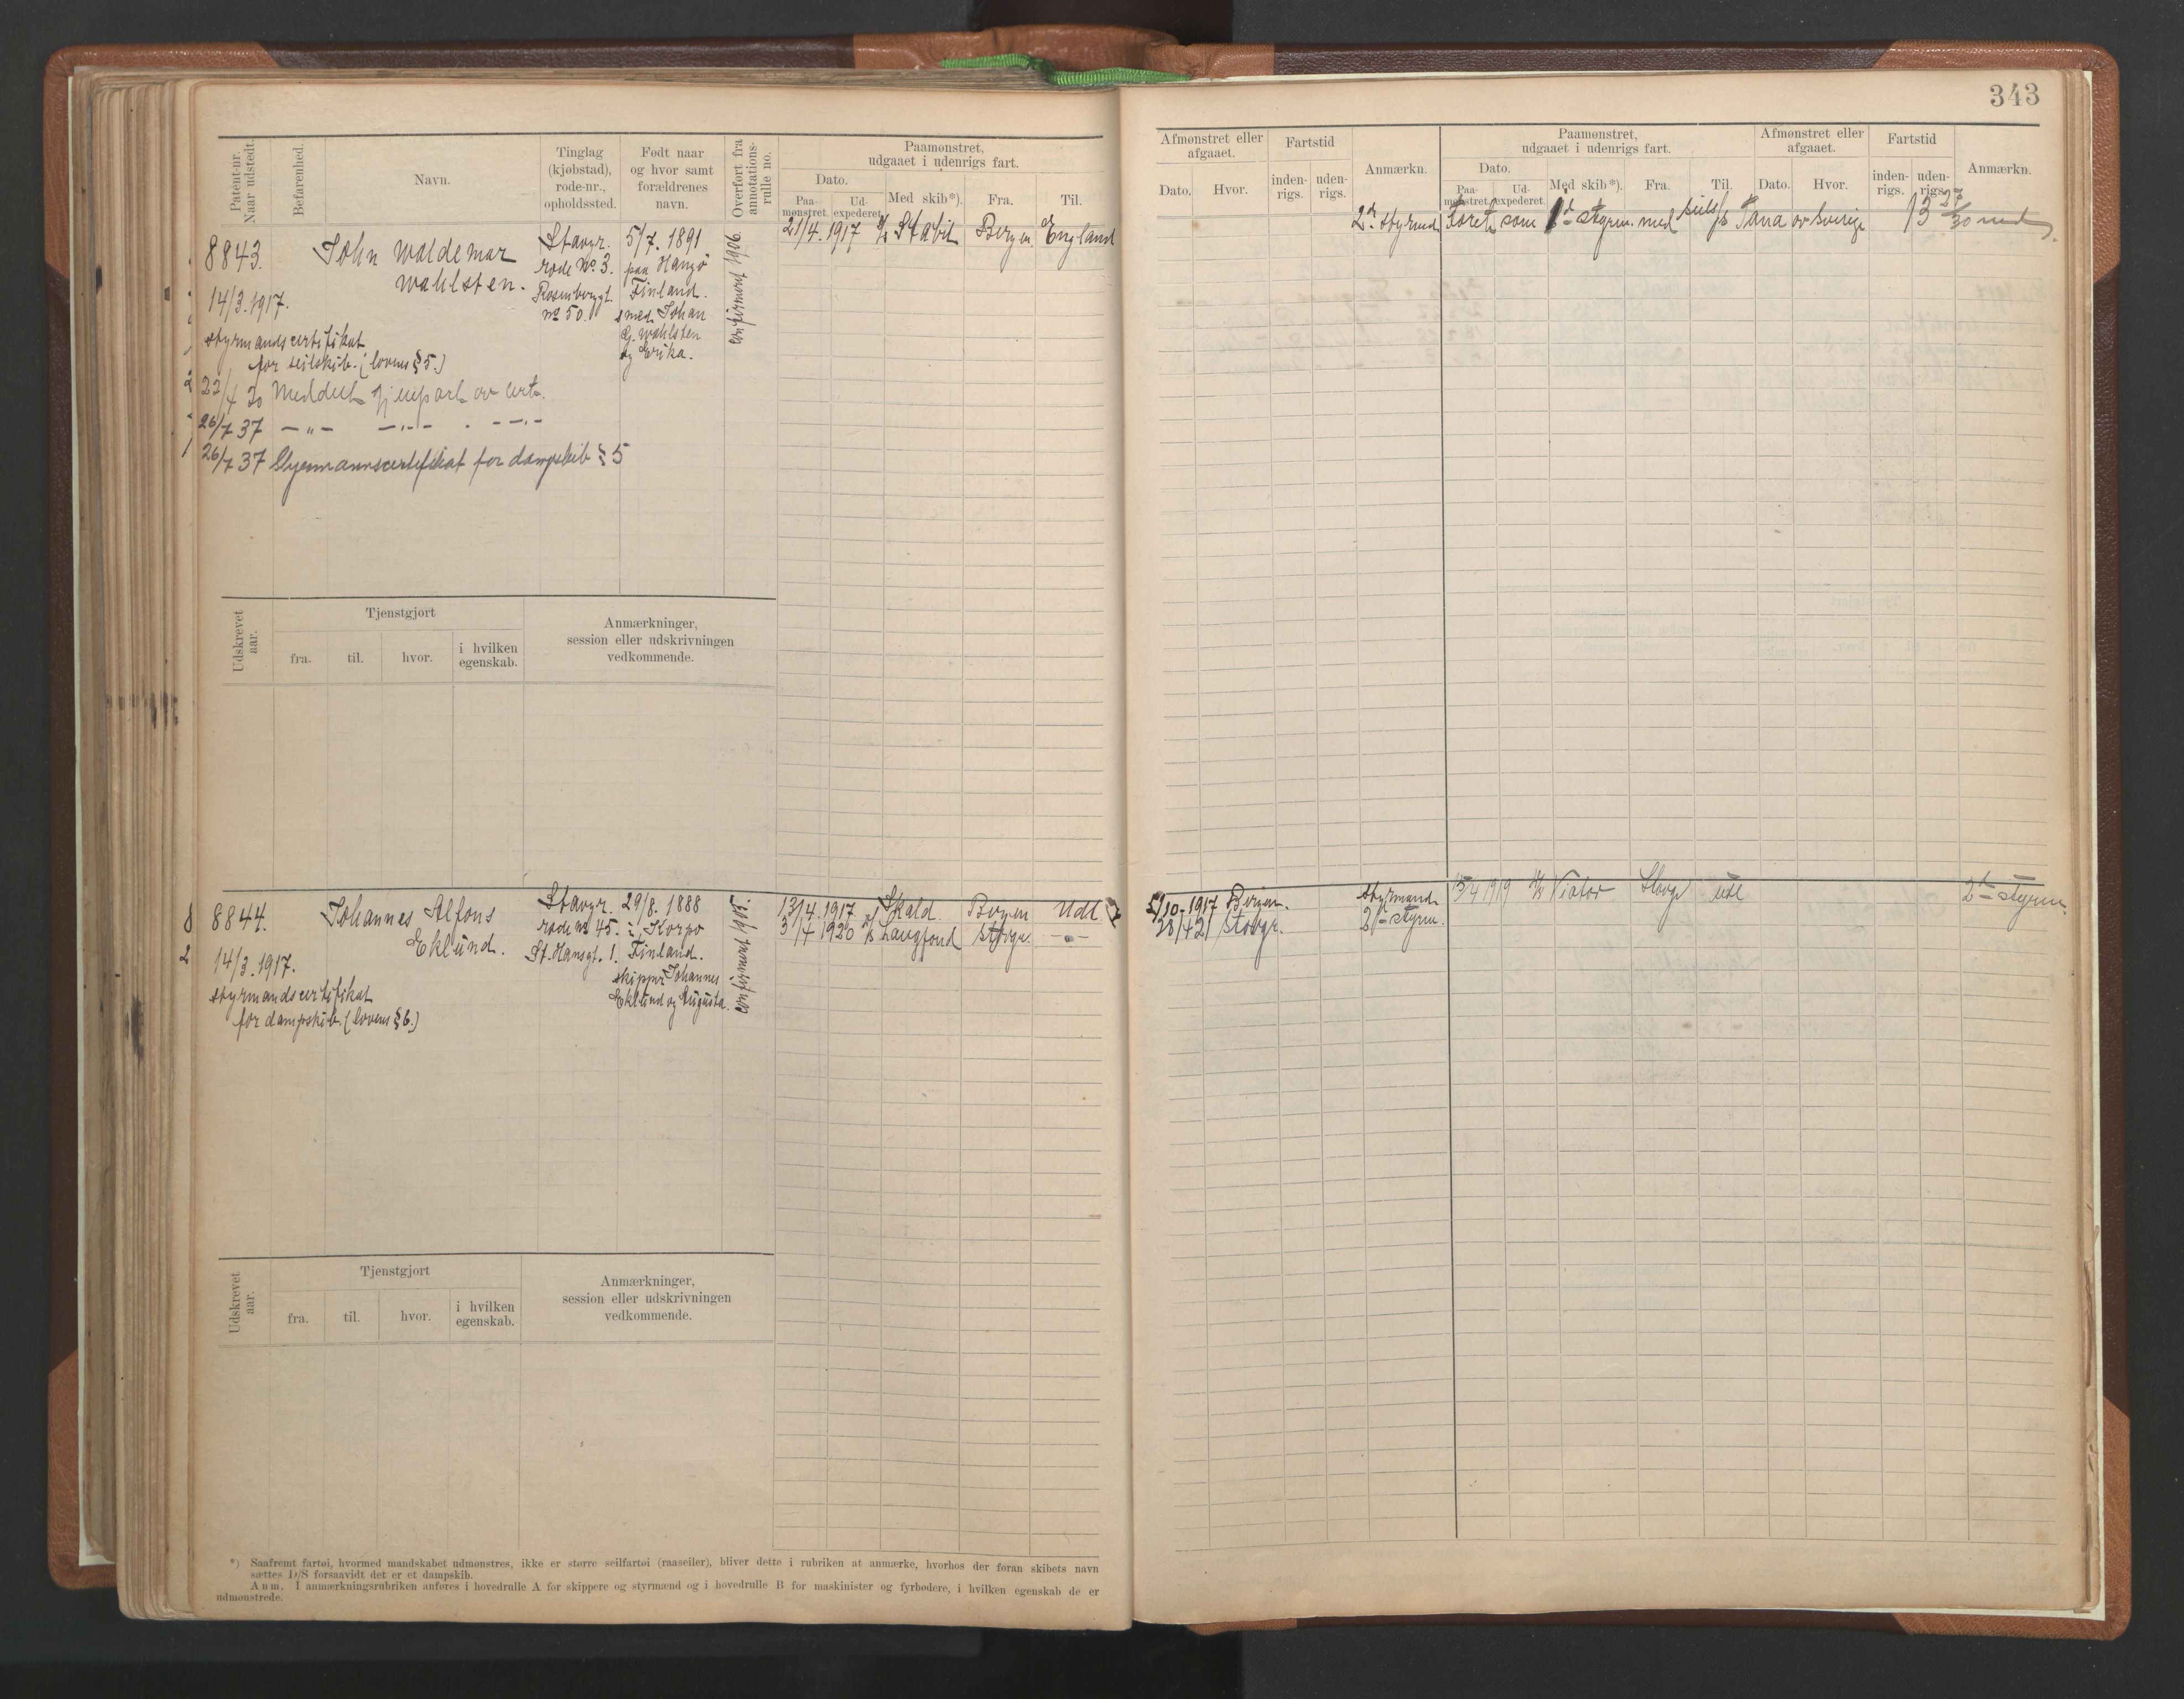 343
Patent-nr. Naar udstedt.
Befarenhed.
Navn.
Tinglag (kjøbstad), rode-nr., opholdssted.
Født naar og hvor samt forældrenes navn.
Overført fra annotations-rulle no.
Paamønstret, udgaaet i udenrigs fart.
Dato.
Paa-mønstret.
Ud-expederet.
Med skib*).
Fra.
Til.
Afmønstret eller afgaaet.
Dato.
Hvor.
Fartstid
inden-rigs.
uden-rigs.
Anmærkn.
Paamønstret, udgaaet i udenrigs fart.
Dato.
Paa-mønstret.
Ud-expederet.
Med skib*).
Fra.
Til.
Afmønstret eller afgaaet.
Dato.
Hvor.
Fartstid
inden-rigs.
uden-rigs.
Anmærkn.
8843.
14/3.1917.
styrmandscertifikat
for seilskib. (lovens § 5.)
John Waldemar
Wahlsten.
Stavgr.
rode No 3.
Rosenberggt.
No 50.
5/7. 1891
paa Hangö
Finland.
smed Johan
G. Wahlsten
og Erika.
confirmeret 1906.
21/4. 1917 Stabil Bergen England
2den styrmd. Faret som 1ste styrm. med seils/s Tana av Sverige 13 27/30 mnd.
22/4 20 Meddelt gjenpart av cert.
26/7 37 —„— —„— —„—
26/7 37 Styrmannscertifikat for dampskib § 5
Udskrevet aar.
Tjenstgjort
fra.
til.
hvor.
i hvilken egenskab.
Anmærkninger, session eller udskrivningen vedkommende.
8844.
14/3.1917.
styrmandscertifikat
for dampskib. (lovens § 6.)
Johannes Alfons
Eklund.
Stavgr.
rode No 45.
St. Hansgt. 1.
29/8. 1888
i Korpo
Finland.
skipper Johannes
Eklund og Augusta.
confirmeret 1905.
13/4. 1917 Skald. Bergen Udl
3/7 1920 Langfond Stavgr. —„—
/10-1917 Bergen. styrmand
28/4 21 Stavgr. 2den styrm.
15/4 1919 Viator Stavgr udl 2den styrm.
Udskrevet aar.
Tjenstgjort
fra.
til.
hvor.
i hvilken egenskab.
Anmærkninger, session eller udskrivningen vedkommende.
*) Saafremt fartøi, hvormed mandskabet udmønstres, ikke er større seilfartøi (raaseiler), bliver dette i rubriken at anmærke, hvorhos der foran skibets navn
sættes D/S forsaavidt det er et dampskib.
Anm. I anmærkningsrubriken anføres i hovedrulle A for skippere og styrmænd og i hovedrulle B for maskinister og fyrbødere, i hvilken egenskab de er
udmønstrede.